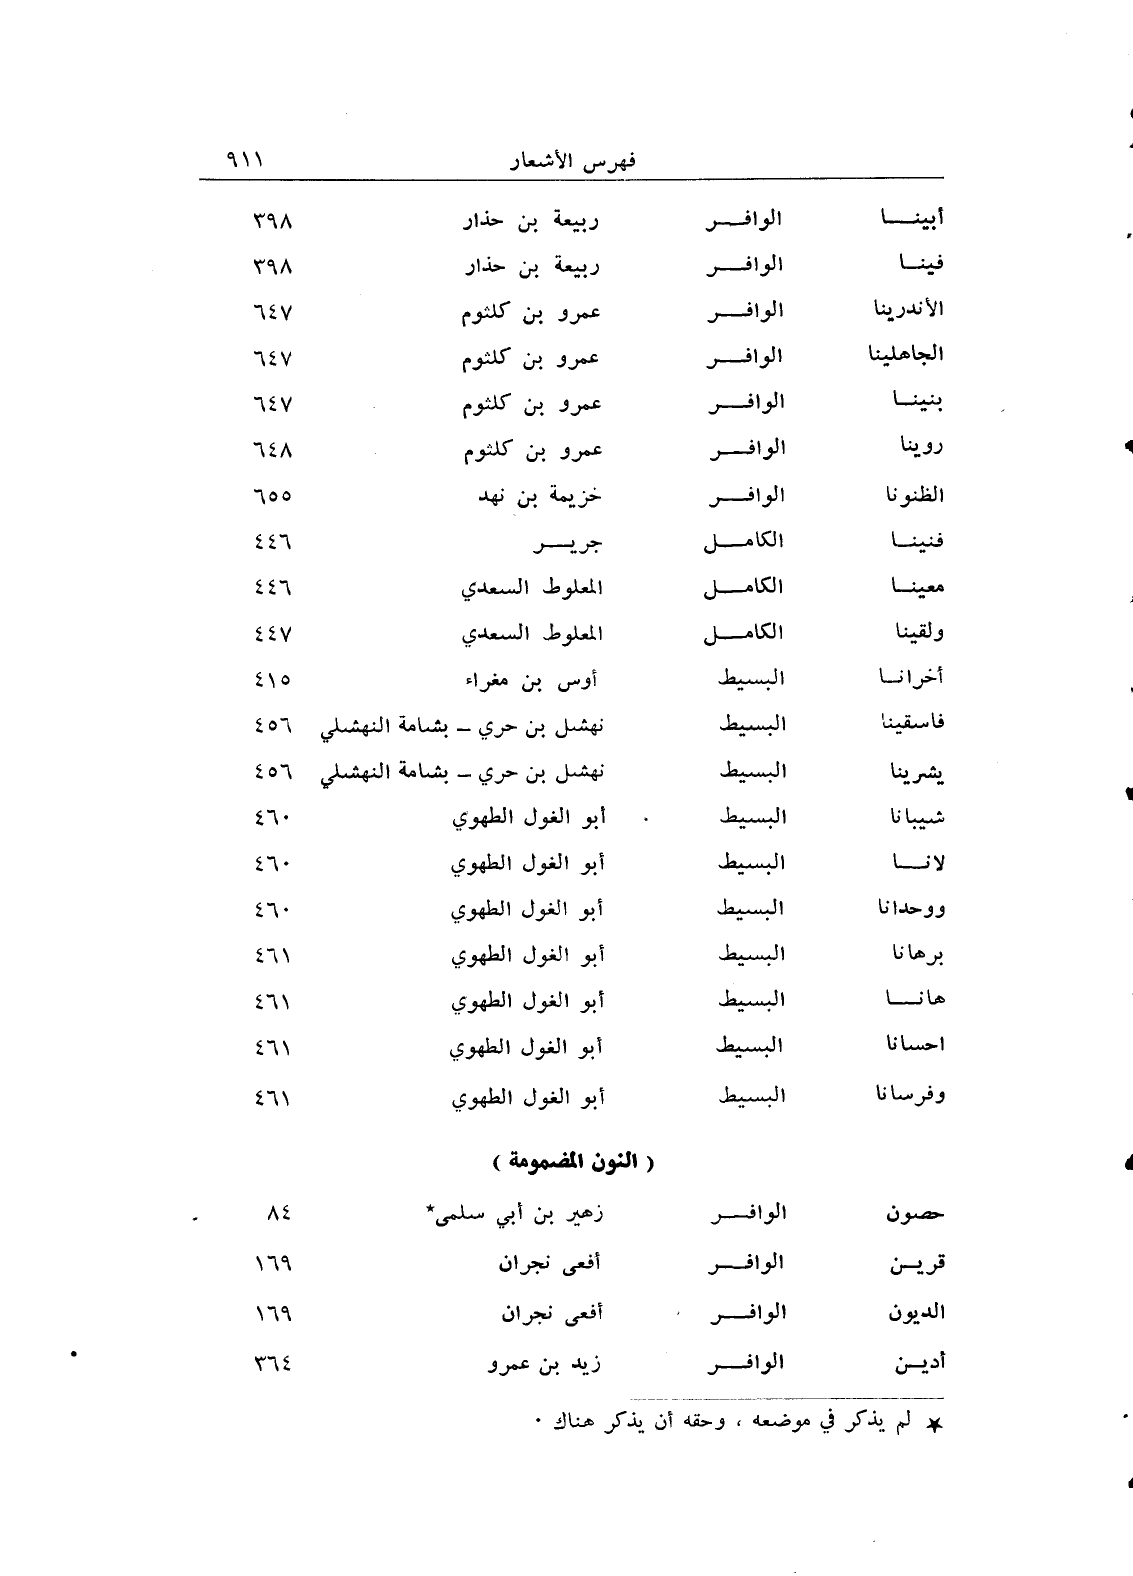 فهرس الأشعار ٩١١
أبينــا الوافــر ربيعة بن حذار ٣٩٨
فينــا الوافــر ربيعة بن حذار ٣٩٨
الأندرينا الوافــر عمرو بن كلثوم ٦٤٧
الجاهلينا الوافــر عمرو بن كلثوم ٦٤٧
بنينــا الوافــر عمرو بن كلثوم ٦٤٧
روينا الوافــر عمرو بن كلثوم ٦٤٨
الظنونا الوافــر خزيمة بن نهد ٦٥٥
فنينــا الكامــل جريــر ٤٤٦
معينــا الكامــل المعلوط السعدي ٤٤٦
ولقينا الكامــل المعلوط السعدي ٤٤٧
أخرانــا البسيط أوس بن مغراء ٤١٥
فاسقينا البسيط نهشل بن حري ــ بشامة النهشلي ٤٥٦
يشرينا البسيط نهشل بن حري ــ بشامة النهشلي ٤٥٦
شيبانا البسيط أبو الغول الطهوي ٤٦٠
لانــا البسيط أبو الغول الطهوي ٤٦٠
ووحدانا البسيط أبو الغول الطهوي ٤٦٠
برهانا البسيط أبو الغول الطهوي ٤٦١
هانــا البسيط أبو الغول الطهوي ٤٦١
احسانا البسيط أبو الغول الطهوي ٤٦١
وفرسانا البسيط أبو الغول الطهوي ٤٦١
( النون المضمومة )
حصون الوافــر زهير بن أبي سلمى* ٨٤
قريــن الوافــر أفعى نجران ١٦٩
الديون الوافــر أفعى نجران ١٦٩
أديــن الوافــر زيد بن عمرو ٣٦٤
★ لم يذكر في موضعه ، وحقه أن يذكر هناك ٠